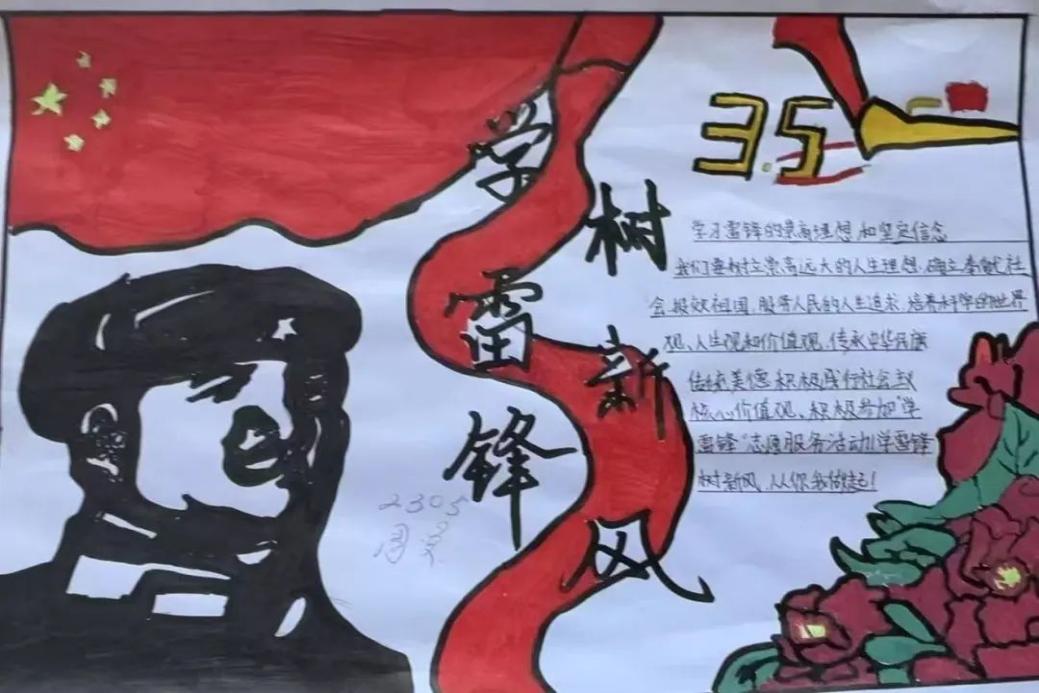 学雷锋
树新风
3.5
学习雷锋的崇高理想和坚定信念
我们要树立崇高远大的人生理想，确立奉献社
会报效祖国，服务人民的人生追求，培养科学的世界
观、人生观和价值观，传承中华民族
传统美德积极践行社会主义
核心价值观、积极参加“学
雷锋”志愿服务活动！学雷锋
树新风，从你我做起！
2305
周